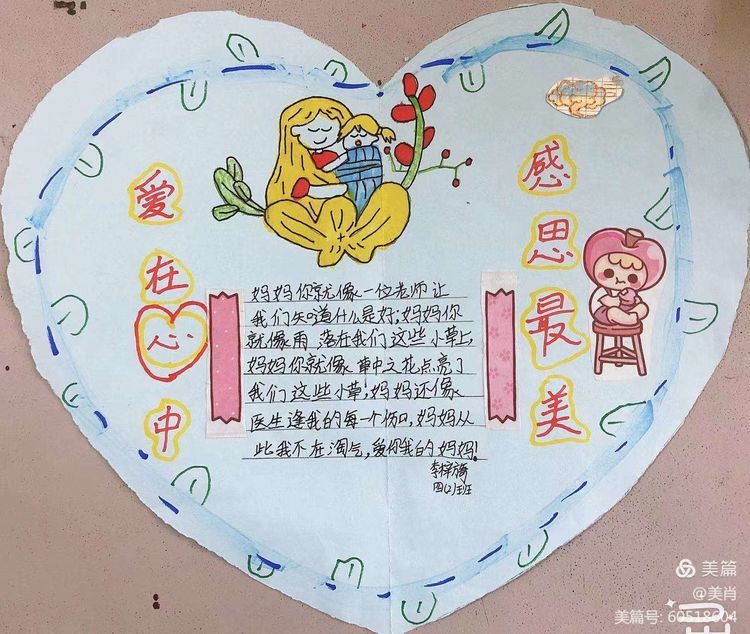 爱在心中
感思最美
妈妈你就像一位老师让
我们知道什么是好;妈妈你
就像雨 落在我们这些小草上,
妈妈你就像 草中之花点亮了
我们这些小草;妈妈还像
医生逢我的每一个伤口,妈妈从
此我不在淘气,爱你我的妈妈!
四(2)班
美篇
@美肖
美篇号: 60518604